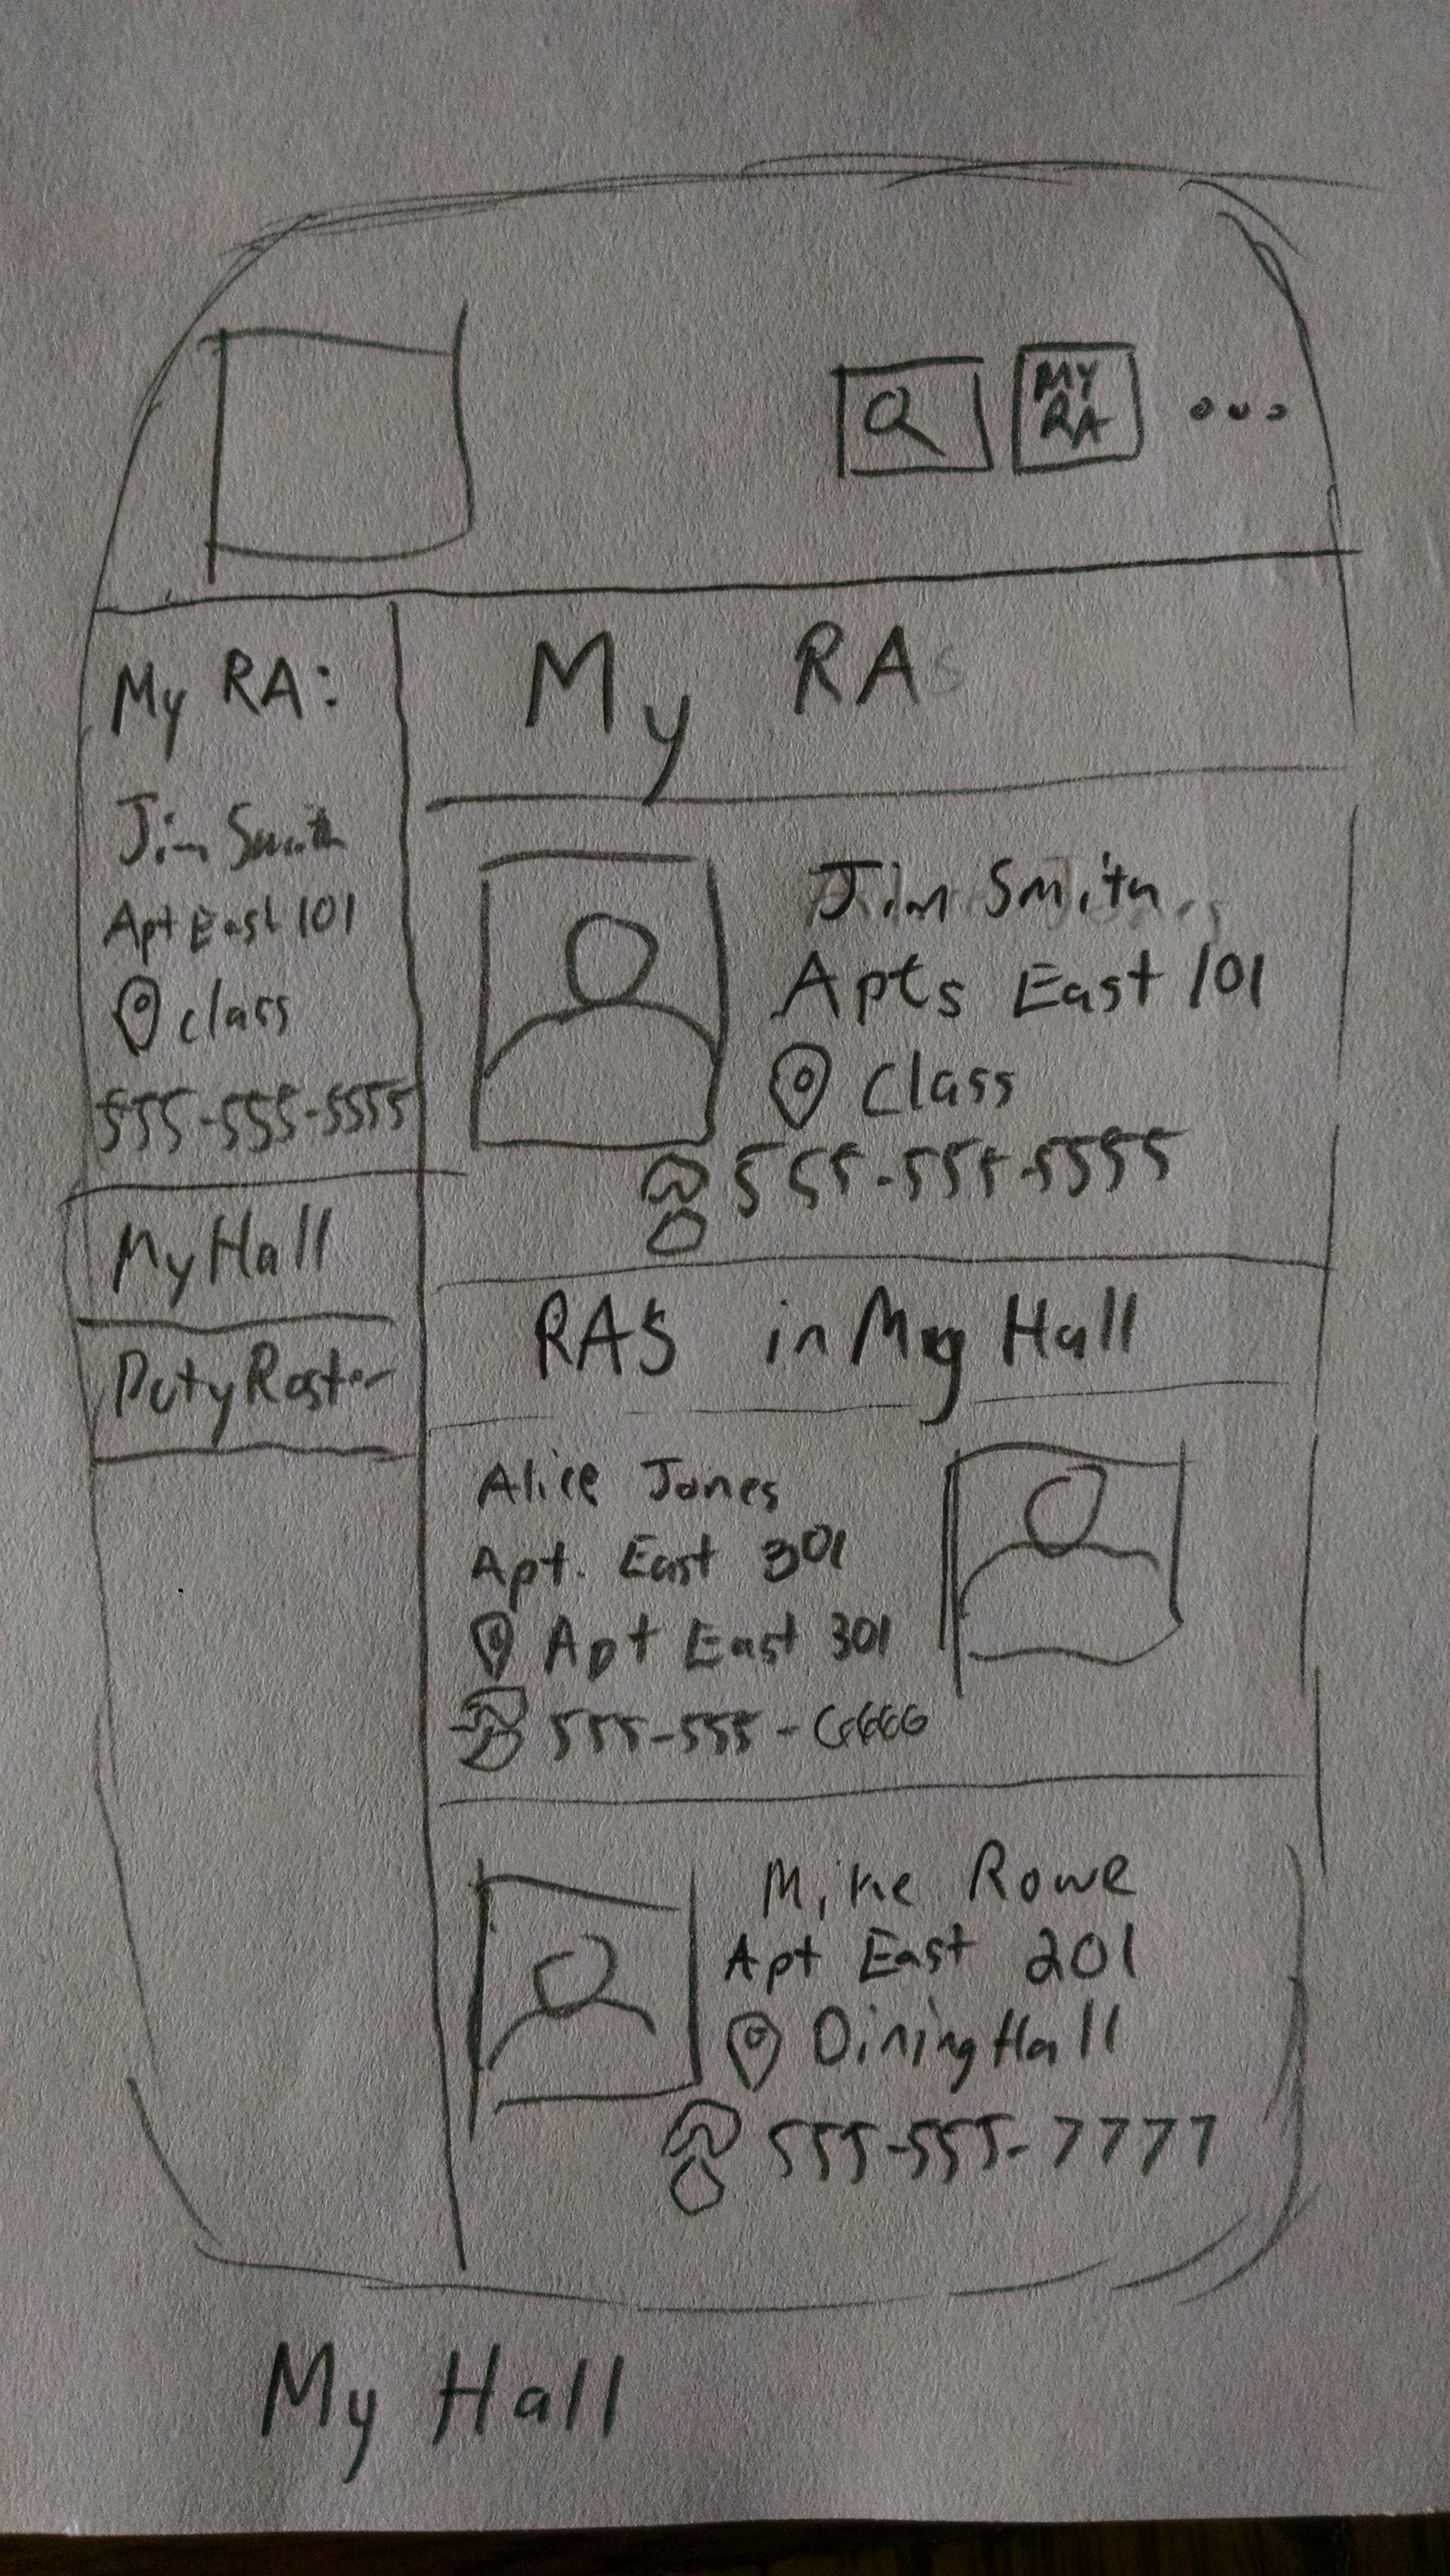 MY
RA
My RA:
Jim Smith
Apt East 101
class
555-555-5555
My Hall
Duty Roster
My RA
Jim Smith
Apts East 101
Class
555-555-5555
RAS in My Hall
Alice Jones
Apt. East 301
Apt East 301
555-555-6666
Mike Rowe
Apt East 201
Dining Hall
555-555-7777
My Hall